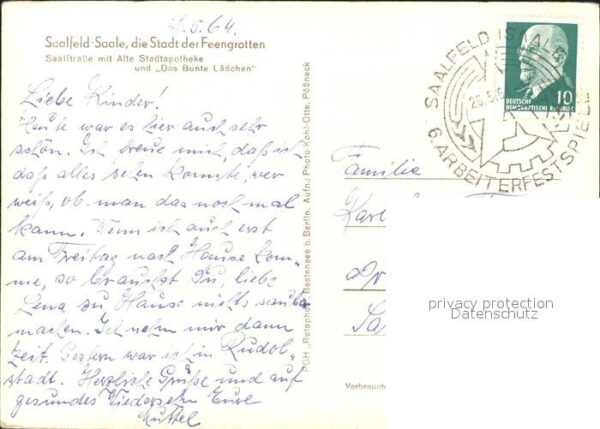 21.5.64.
Saalfeld-Saale, die Stadt der Feengrotten
Saalstraße mit Alte Stadtapotheke
und „Das Bunte Lädchen"
Liebe Kinder!
Heute war es hier auch sehr
schön. Ich freue mich, daß ich
daß alles sehen konnte, wer
weiß, ob man das noch mal
kann. Wenn ich auch erst
am Freitag nach Hause kom-
me, so brauchst Du, liebe
Lena zu Hause nichts sauber
machen. Ich nehm mir dann
Zeit. Gestern war ich in Rudol-
stadt. Herzliche Grüße und auf
gesundes Wiedersehn Eure
Muttel
PGH „Rotophot" Bestensee b. Berlin. Aufn.: Photo Kohl-Otte, Pößneck
SAALFELD (SAALE)
6. ARBEITERFESTSPIELE
10
DEUTSCHE
DEMOKRATISCHE REPUBLIK
Familie
privacy protection
Datenschutz
Verbrauch